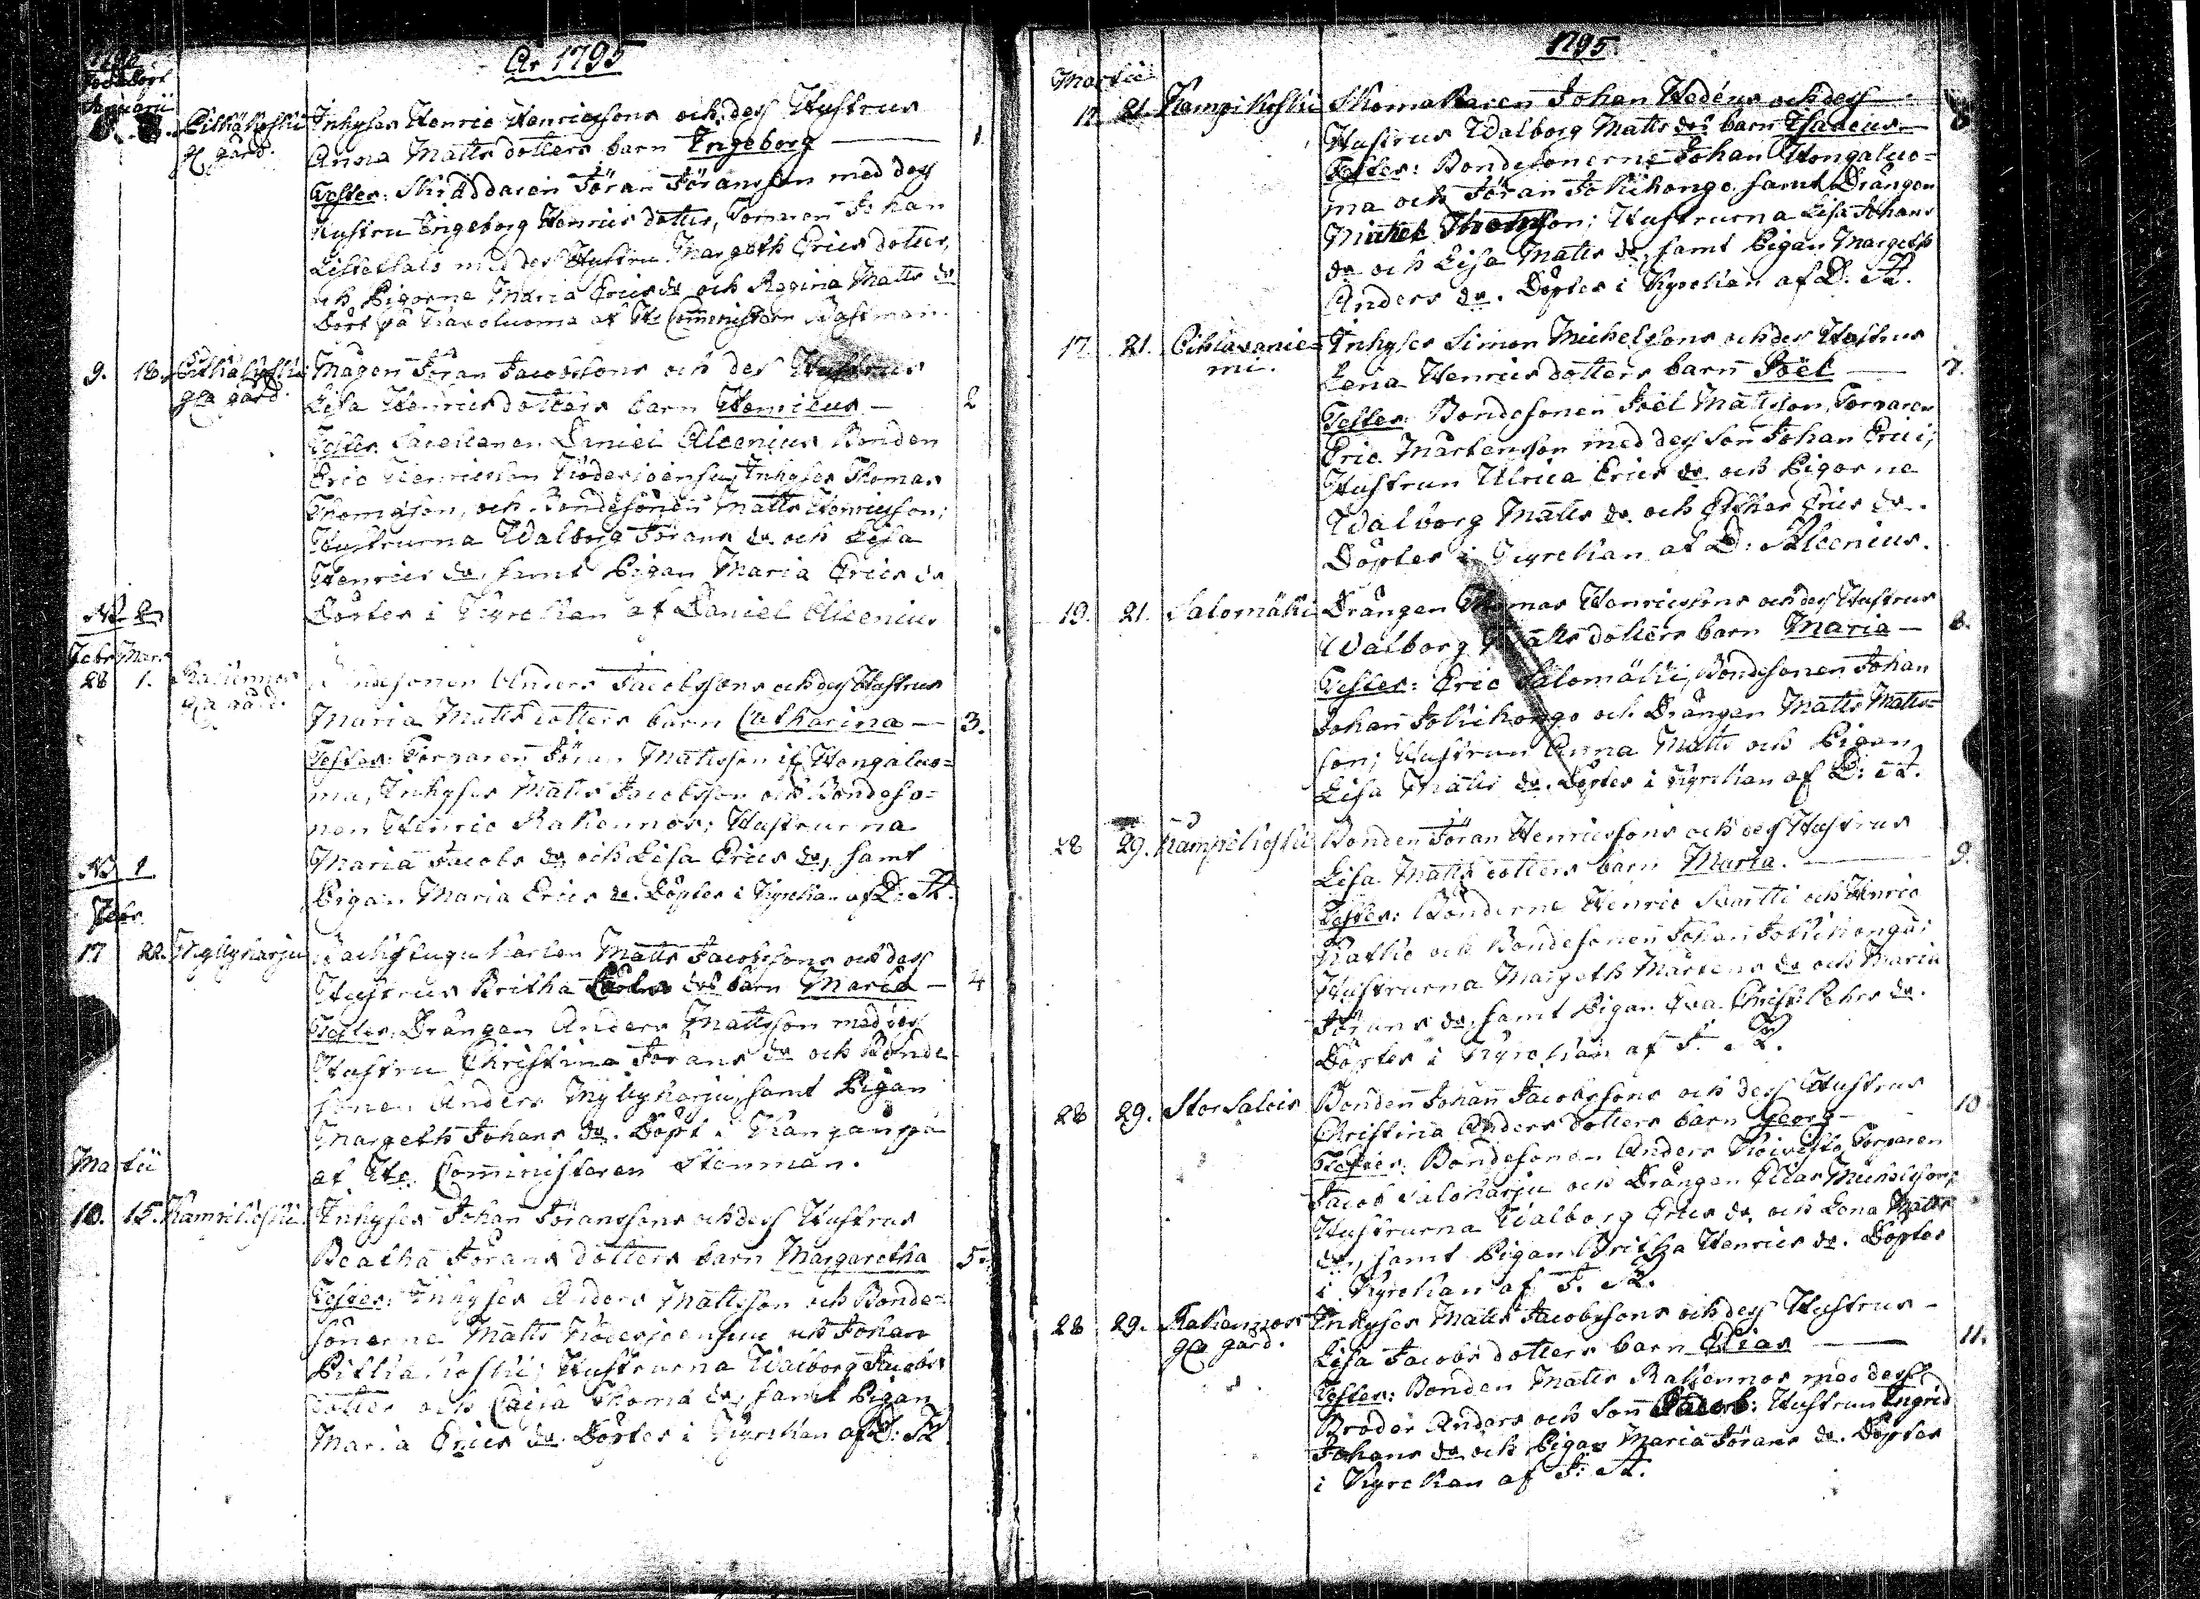 År 1795
Född Döpt
Januarii
Pitkäkoski Inhyses Henric Henricssons och dess Hustrus
gl gård. Anna Matts dotters barn Ingeborg — 1.
Testes: Skräddaren Jöran Jöransson med dess
Hustru Ingeborg Henrics dotter, Torparen Johan
med dess Hustru Margeth Erics dotter,
och Pigorne Maria Erics dr och Regina Matts dr
Döpt på af Hr Comministern Wastman.
9. 18. Pitkäkoski Mågen Jöran Jacobssons och des Hustrus
gla gård. Lisa Henrics dotters barn Henricus — 2
Testes: Sacellanen Daniel Alcenius Bonden
Eric Henricsson Inhyses Thomas
Thomasson, och Bondesonen Matts Henricsson;
Hustrurna Walborg Jörans dr och Lisa
Henrics dr, samt Pigan Maria Erics dr
Döptes i Kyrckan af Daniel Alcenius
Febr Mars
28 1. Rakennos Bondesonen Anders Jacobssons och dess Hustrus
gla gård. Maria Matts dotters barn Catharina — 3.
Testes: Torparen Jöran Mattsson if Hongaluo=
ma, Inhyses Matts Jacobsson och Bondeso=
nen Henric Rakennos; Hustrurna
Maria Jacobs dr, och Lisa Erics dr, samt
Pigan Maria Erics dr. Döptes i Kyrckan af D: A.
Febr.
17 22. Myllyharju Matts Jacobssons och dess
Hustrus Britha drs barn Maria — 4
Testes: Drängen Anders Mattsson med dess
Hustru Christina Jörans dr och Bonde
sonen Anders Myllyharju, samt Pigan
Margeth Johans dr. Döpt i Kangånpä
af Hr Comministeren Stenman.
Martii
10. 15. Kampikoski Inhyses Johan Jöranssons och dess Hustrus
Beatha Jörans dotters barn Margaretha 5.
Testes: Inhyses Anders Mattsson och Bonde=
sönerne Matts och Johan
Pitkäkoski; Hustrurna Walborg Jacobs
dotter och Caisa Thoma dr, samt Pigan
Maria Erics dr. Döptes i Kyrckan af D: A.
1795
Martii
12. 21. Kampikoski Skomakaren Johan Hedéns och dess
Hustrus Walborg Matts drs barn Isaacus — 6
Testes: Bondesönerne Johan Hongaluo=
ma och Jöran Jokihonge, samt Drängen
Michel Thomsson; Hustrurna Lisa Johans
dr och Lisa Matts dr, samt Pigan Margeth
Anders dr. Döptes i Kyrckan af D: A.
17 21. Pihlavanie= Inhyses Simon Michelssons och des Hustrus
mi. Lena Henrics dotters barn Joël — 7.
Testes: Bondesonen Joël Mattsson, Torparen
Eric Mårtensson med dess Son Johan Erici;
Hustrun Ulrica Erics dr och Pigorne
Walborg Matts dr. och Esther Erics dr.
Döptes i Kyrckan af D: Alcenius.
19. 21. Salomäki Drängen Thomas Henricssons och dess Hustrus
Walborg Matts dotters barn Maria — 8.
Testes: Eric Salomäki, Bondesonen Johan
Johan Jokihonge och Drängen Matts Matts=
son; Hustrun Anna Matts och Pigan
Lisa Matts dr. Döptes i Kyrckan af D: A.
28 29. Kampikoski Bonden Jöran Henricssons och dess Hustrus
Lisa Matts dotters barn Maria. — 9.
Testes: Bönderne Henric Svartti och Henric
och Bondesonen Johan Jokihonge;
Hustrurna Margeth Mårtens dr och Maria
Jörans dr, samt Pigan Eva Christ: Pehrs dr.
Döptes i Kyrckan af J. A.
28 29. Stor Salois Bonden Johan Jacobssons och dess Hustrus
Christina Anders dotters barn Georg — 10
Testes: Bondesonen Anders Koivisto Torparen
Jacob Saloharju och Drängen Elias Michelsson;
Hustrurna Walborg Erics dr. och Lena Matts
dr, samt Pigan Britha Henrics dr. Döptes
i Kyrckan af J. A.
28 29. Rakennos Inhyses Matts Jacobssons och dess Hustrus
gla gård. Lisa Jacobs dotters barn Elias — 11.
Testes: Bonden Matts Rakennos med dess
Broder Anders och Son Jacob: Hustrun Ingrid
Johans dr och Pigan Maria Jörans dr. Döptes
i Kyrckan af J: A.